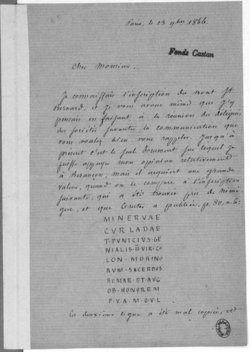 Paris, le 13 9bre 1866.
Fonds Castan
Cher Monsieur,
Je connaissais l'inscription du mont St
Bernard, et je vous avoue même que j'y
pensais en faisant, à la réunion des délégués
des sociétés savantes, la communication que
vous voulez bien vous rappeler. Jusqu'à
présent c'est le seul document sur lequel je
puisse appuyer mon opinion relativement
à Besançon; mais il acquiert une grande
valeur, quand on le compare à l'inscription
suivante, qui a été trouvée près de
que, et que a publiée, p. 80, n. 6:
MINERVAE
CVRLADAE
T·PVNICIVS·GE
NIALIS·IIVIR·C
LON·MORINO
RVM·SACERDOS
ROMAE·ET·AVG
OB·HONOREM
F·V·A·M·O·V·L
La deuxième ligne a été mal copiée,